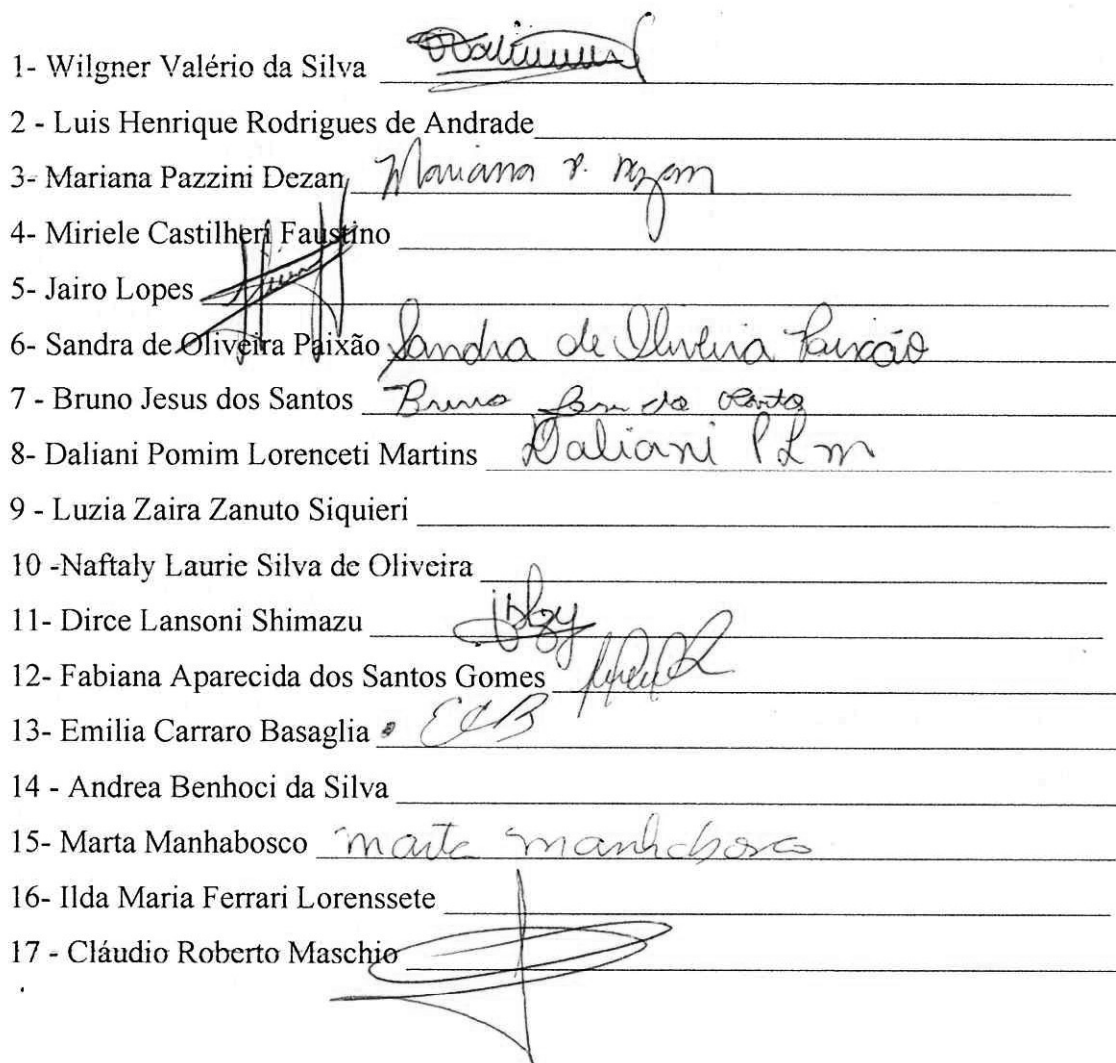 1- Wilgner Valério da Silva
2 - Luis Henrique Rodrigues de Andrade
3- Mariana Pazzini Dezan Mariana P. Dezan
4- Miriele Castilheri Faustino
5- Jairo Lopes
6- Sandra de Oliveira Paixão Sandra de Oliveira Paixão
7 - Bruno Jesus dos Santos Bruno
8- Daliani Pomim Lorenceti Martins Daliani P L M
9 - Luzia Zaira Zanuto Siquieri
10 -Naftaly Laurie Silva de Oliveira
11- Dirce Lansoni Shimazu
12- Fabiana Aparecida dos Santos Gomes
13- Emilia Carraro Basaglia ECB
14 - Andrea Benhoci da Silva
15- Marta Manhabosco Marta Manhabosco
16- Ilda Maria Ferrari Lorenssete
17 - Cláudio Roberto Maschio